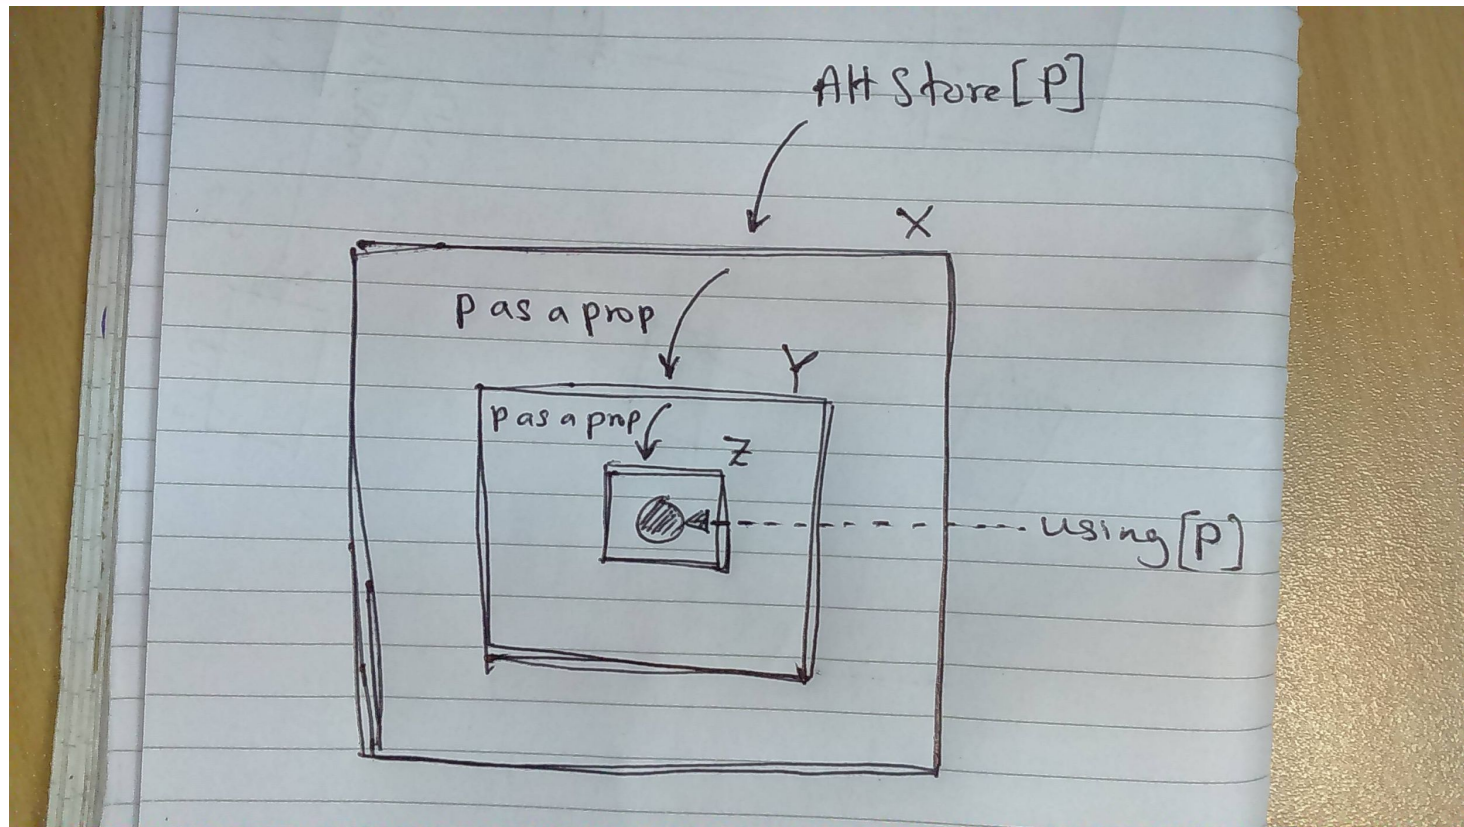 Alt Store[P]
X
p as a prop
Y
p as a prop
Z
using[P]